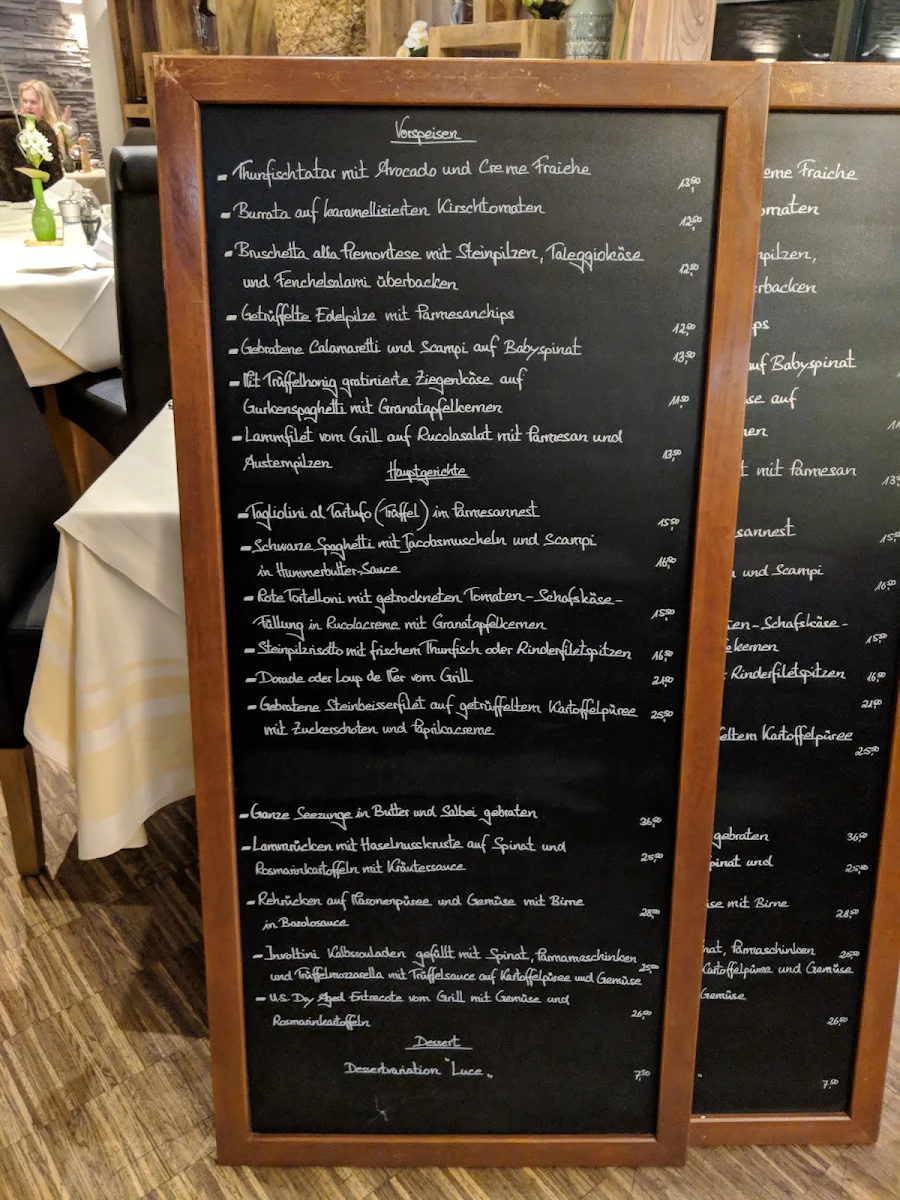 Vorspeisen
- Thunfischtatar mit Avocado und Creme Fraiche 13,50
- Burrata auf karamellisierten Kirschtomaten 12,50
- Bruschetta alla Piemontese mit Steinpilzen, Taleggiokäse 12,50
und Fenchelsalami überbacken
- Getrüffelte Edelpilze mit Parmesanchips 12,50
- Gebratene Calamaretti und Scampi auf Babyspinat 13,50
- Mit Trüffelhonig gratinierte Ziegenkäse auf
Gurkenspaghetti mit Granatapfelkernen 11,50
- Lammfilet vom Grill auf Rucolasalat mit Parmesan und
Austernpilzen 13,50
Hauptgerichte
- Tagliolini al Tartufo (Trüffel) im Parmesannest 15,50
- Schwarze Spaghetti mit Jacobsmuscheln und Scampi
in Hummerbutter-Sauce 16,50
- Rote Tortelloni mit getrockneten Tomaten-Schafskäse-
Füllung in Rucolacreme mit Granatapfelkernen 15,50
- Steinpilzrisotto mit frischem Thunfisch oder Rinderfiletspitzen 16,50
- Dorade oder Loup de Mer vom Grill 21,50
- Gebratene Steinbeisserfilet auf getrüffeltem Kartoffelpüree 25,50
mit Zuckerschoten und Paprikacreme
- Ganze Seezunge in Butter und Salbei gebraten 36,50
- Lammrücken mit Haselnusskruste auf Spinat und 25,50
Rosmarinkartoffeln mit Kräutersauce
- Rehrücken auf Maronenpüree und Gemüse mit Birne 28,50
in Barolosauce
- Involtini Kalbsrouladen gefüllt mit Spinat, Parmamaschinken 25,50
und Trüffelmozzarella mit Trüffelsauce auf Kartoffelpüree und Gemüse
- U.S. Dry Aged Entrecote vom Grill mit Gemüse und
Rosmarinkartoffeln 26,50
Dessert
Dessertvariation "Luce" 7,50
eme Fraiche
omaten
npilzen,
erbacken
ps
auf Babyspinat
se auf
nen
t mit Parmesan
13,
sannest 15,50
und Scampi
16,50
ten-Schafskäse-
kernen 15,50
r Rinderfiletspitzen 16,50
21,50
feltem Kartoffelpüree
25,50
gebraten 36,50
pinat und
25,50
üse mit Birne
28,50
nat, Parmaschinken 25,50
Kartoffelpüree und Gemüse
Gemüse
26,50
"
7,50